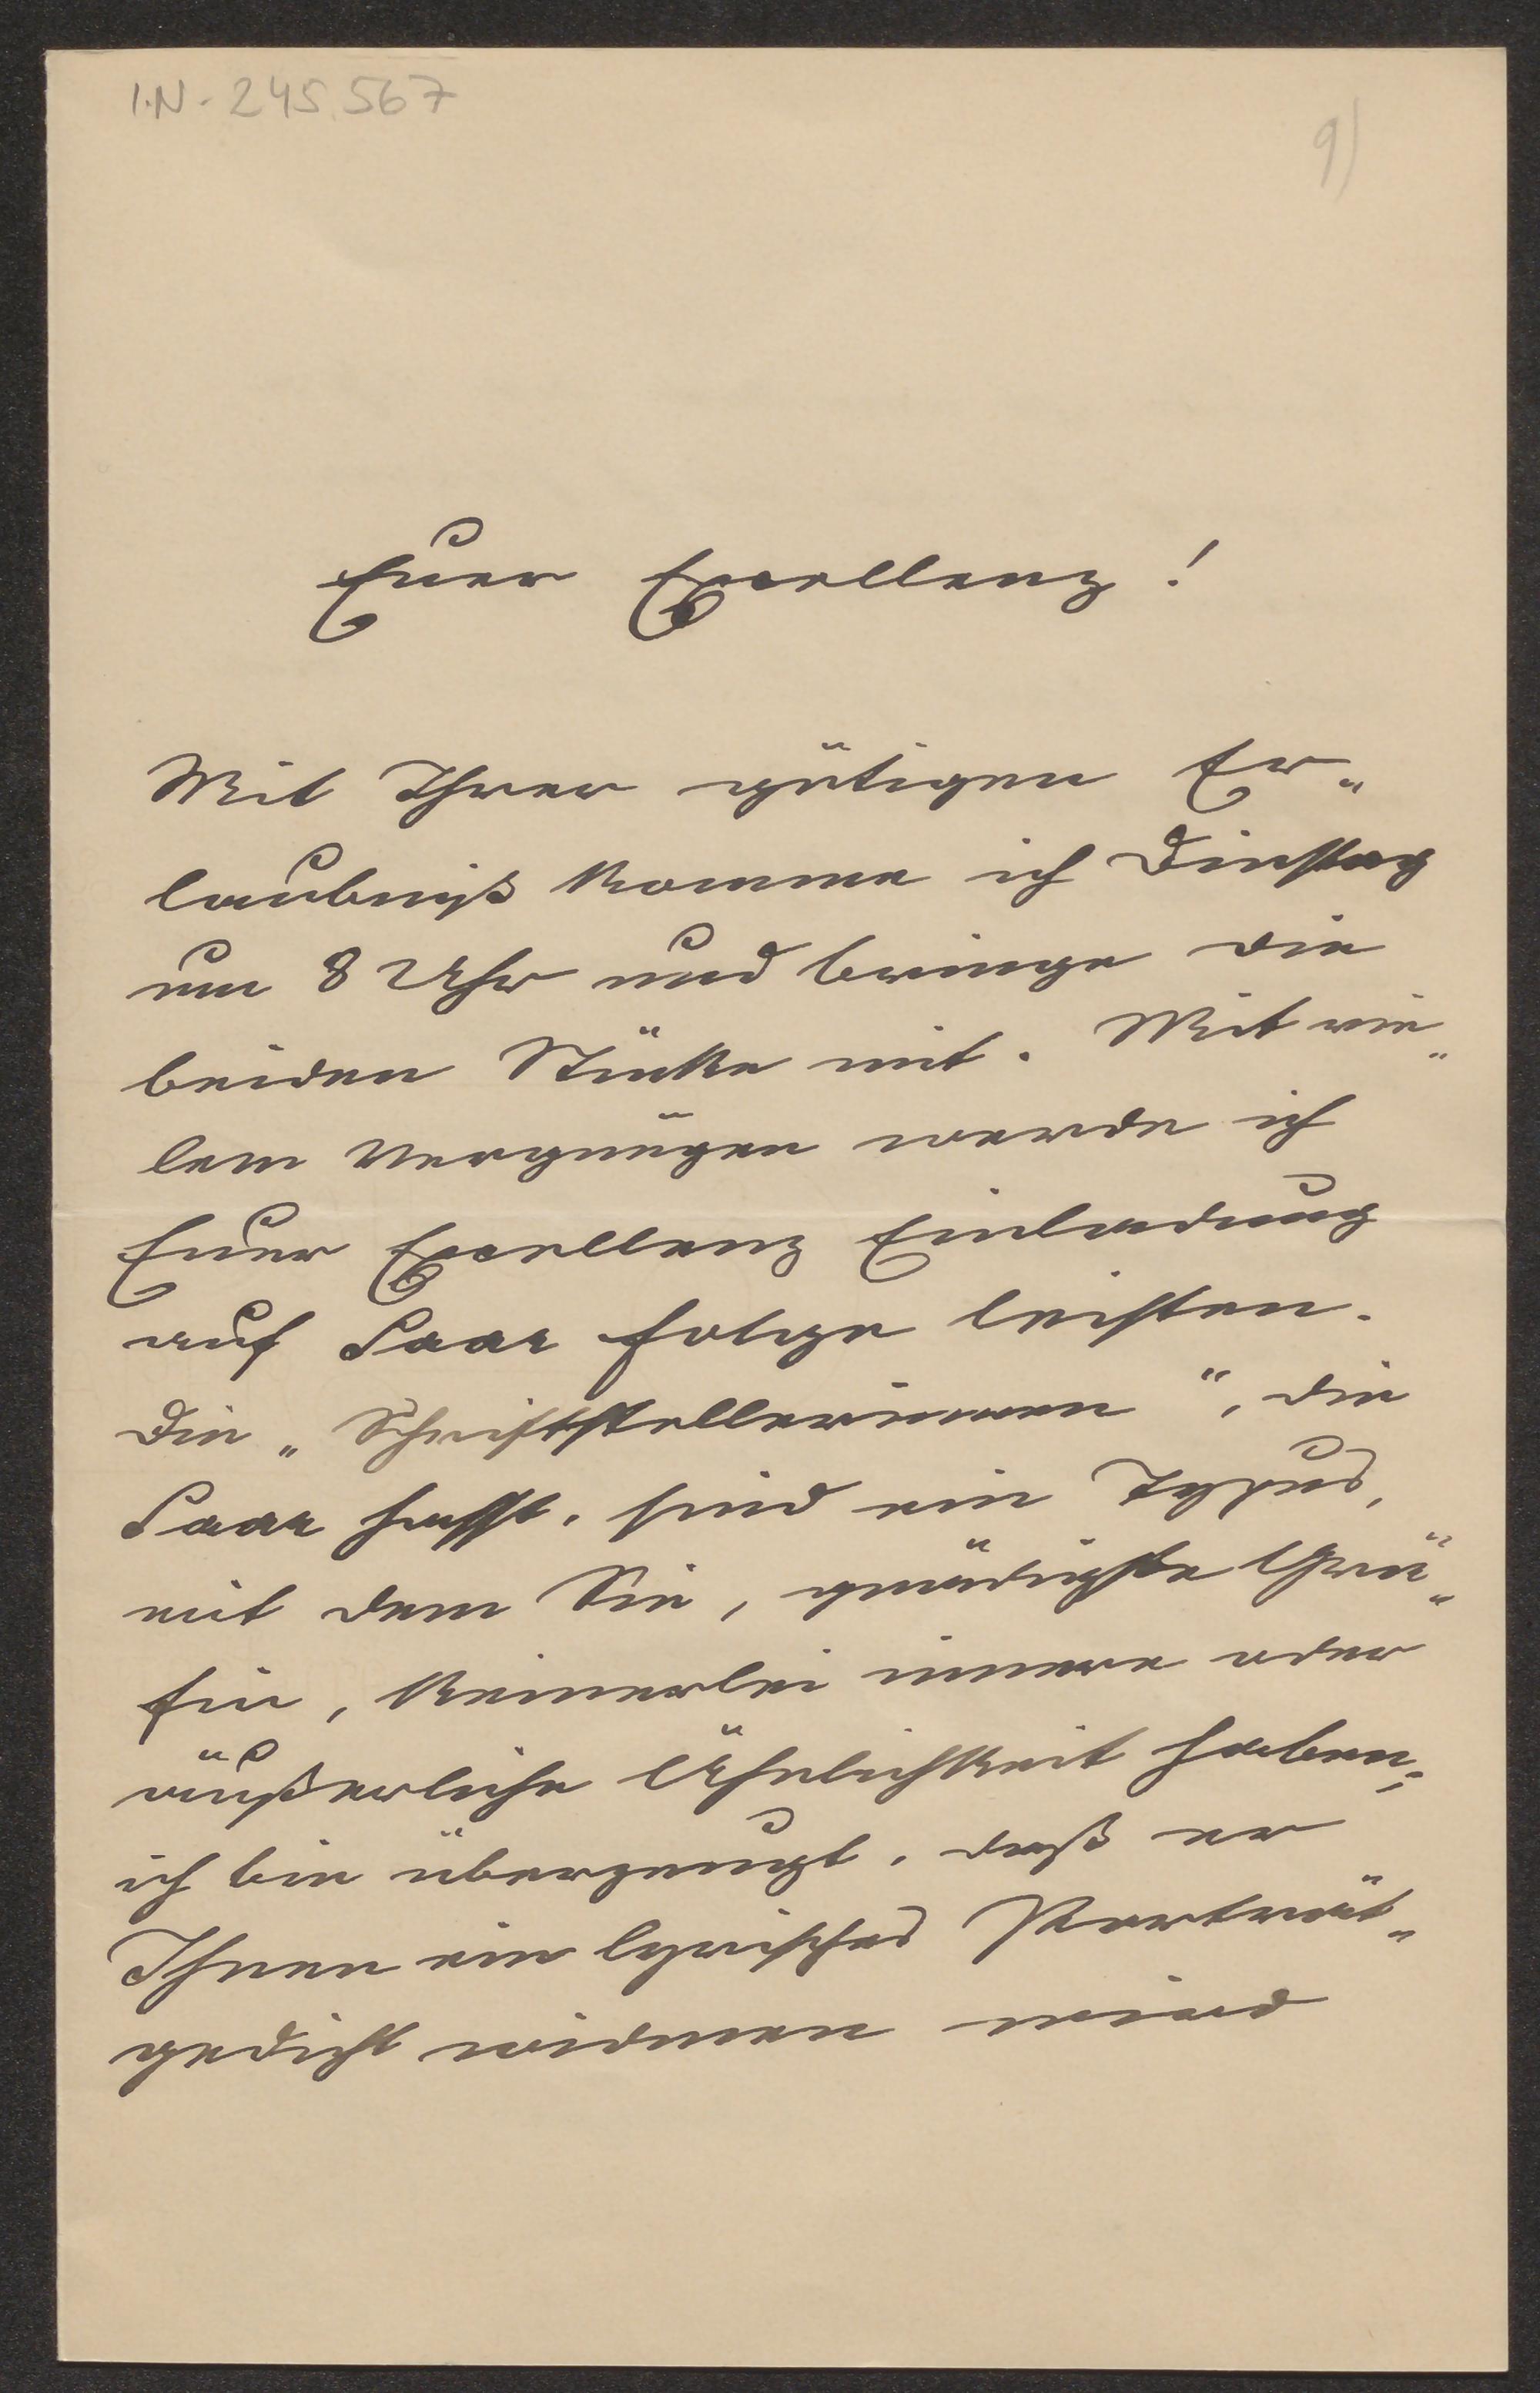 I.N. 245.567
9)
Euer Excellenz!
Mit Ihrer gütigen Er„
laubniß komme ich Dinstag
um 8 Uhr und bringe die
beiden Stücke mit. Mit vie„
lem Vergnügen werde ich
Euer Excellenz Einladung
auf Saar folge leisten.
Die „Schriftstellerinnen“, die
Saar hasst, sind ein Typus,
mit dem Sie, gnädigste Grä„
fin, keinerlei innere oder
äußerliche Ähnlichkeit haben;
ich bin überzeugt, daß er
Ihnen ein lyrisches Porträt„
gedicht widmen wird